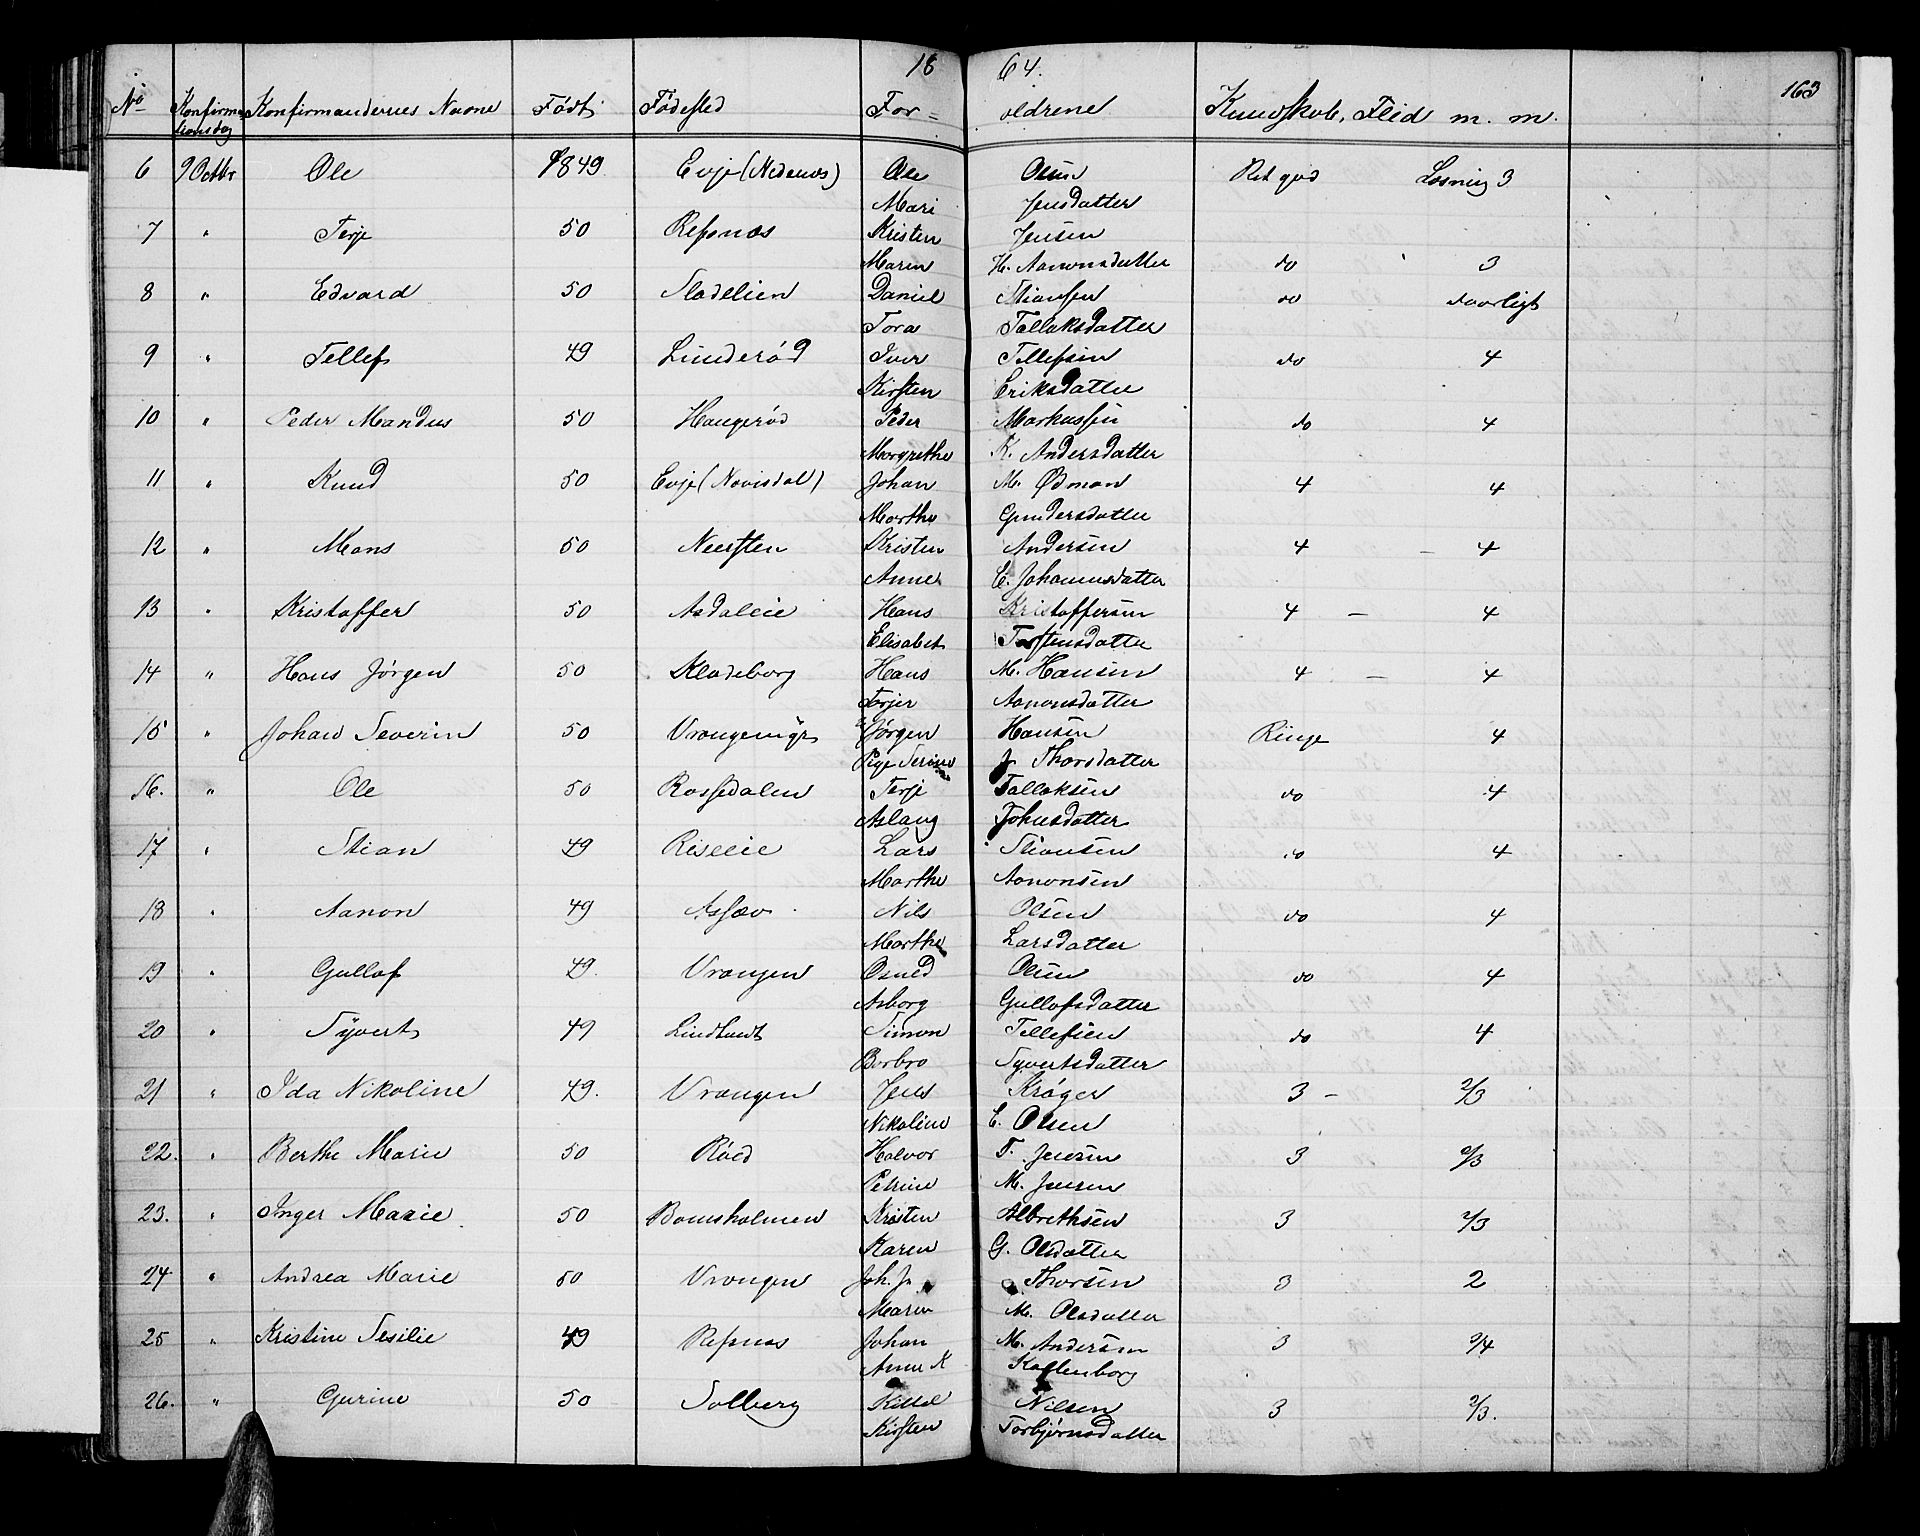 18 64. 163
No Konfirmationsdag Konfirmandernes Navne Født Fødested For= ældrene Kundskab, Flid m. m.
6 9 Octbr Ole 1849 Evje (Nedenæs) Ole Olsen Ret god Læsning 3
Mari Jensdatter
7 " Terje 50 Refsnæs Kristen Jensen
Maren H. Aanonsdatter do 3
8 " Edvard 50 Daniel Stiansen do daarligt
Tora Tallaksdatter
9 " Tellef 49 Linderød Iver Tellefsen do 4
Kirsten Eriksdatter
10 " Peder Mandus 50 Haugerød Peder Markussen do 4
Margrethe K. Andersdatter
11 " Knud 50 Evje (Navisdal) Johan M. Ødman 4 4
Marthe Gundersdatter
12 " Mons 50 Neersten Kristen Andersen 4 – 4
Anne C. Johannesdatter
13 " Kristoffer 50 Asdaleie Hans Kristoffersen 4 – 4
Elisabet Torstensdatter
14 " Hans Jørgen 50 Kladeborg Hans M. Hansen 4 – 4
Torjer Aanonsdatter
15 " Johan Severin 50 Vrangevige Jørgen Hansen Ringe 4
Pige Serine J. Thorsdatter
16. " Ole 50 Rossedalen Terje Tallaksen do 4
Aslaug Johnsdatter
17 " Stian 49 Riseeie Lars Stiansen do 4
Marthe Aanonsen
18 " Aanon 49 Assæv Nils Olsen do 4
Marthe Larsdatter
19 " Gullof 49. Vrangen Osuld Olsen do 4
Asborg Gullofsdatter
20 " Syvert 49 Lindtveit Simon Tellefsen do 4
Borbro Syvertsdatter
21 " Ida Nikoline 49. Vrangen Jens Krøger 3 – 2/3
Nikoline C. Olsen
22. " Berthe Marie 50 Røed Halvor T. Jensen 3 2/3
Petrine M. Jensen
23. " Inger Marie 50 Bomsholmen Kristen Albrethsen 3 2/3
Karen G. Olsdatter
24 " Andrea Marie 50 Vrangen Joh. J. Thorsen 3 2
Maren M. Olsdatter
25 " Kristine Sesilie 49 Refsnæs Johan M. Andersen 3 3/4
Anne K Kallenborg
26. " Gurine 50 Solberg Kittel Nilsen 3 2/3.
Kirsten Torbjørnsdatter